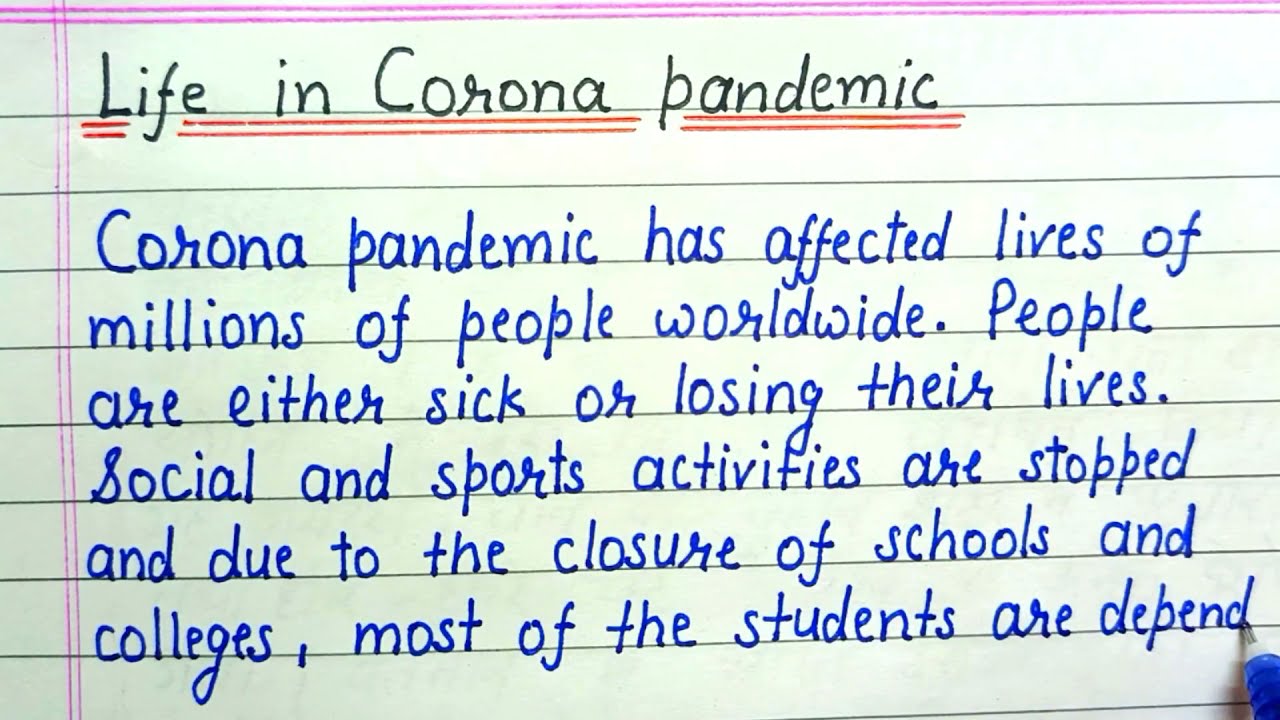 Life in Corona pandemic
Corona pandemic has affected lives of
millions of people worldwide. People
are either sick or losing their lives.
Social and sports activities are stopped
and due to the closure of schools and
colleges, most of the students are depend